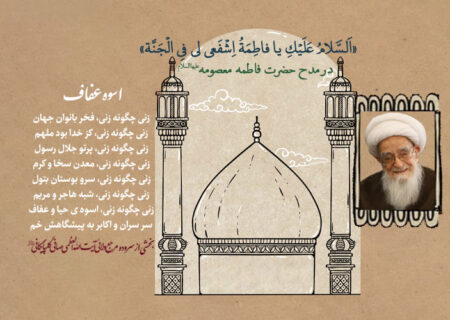 «اَلسَّلامُ عَلَیْكِ یا فاطِمَةُ اِشْفَعی لی فِی الْجَنَّة»
در مدح حضرت فاطمه معصومه علیهاالسلام
اسوه عفاف
زنی چگونه زنی، فخر بانوان جهان
زنی چگونه زنی، کز خدا بود ملهم
زنی چگونه زنی، پرتو جلال رسول
زنی چگونه زنی، معدن سخا و کرم
زنی چگونه زنی، سرو بوستان بتول
زنی چگونه زنی، شبه هاجر و مریم
زنی چگونه زنی، اسوه ی حیا و عفاف
سر سران و اکابر به پیشگاهش خم
بخشی از سروده مرجع عالیقدر آیت الله العظمی صافی گلپایگانی